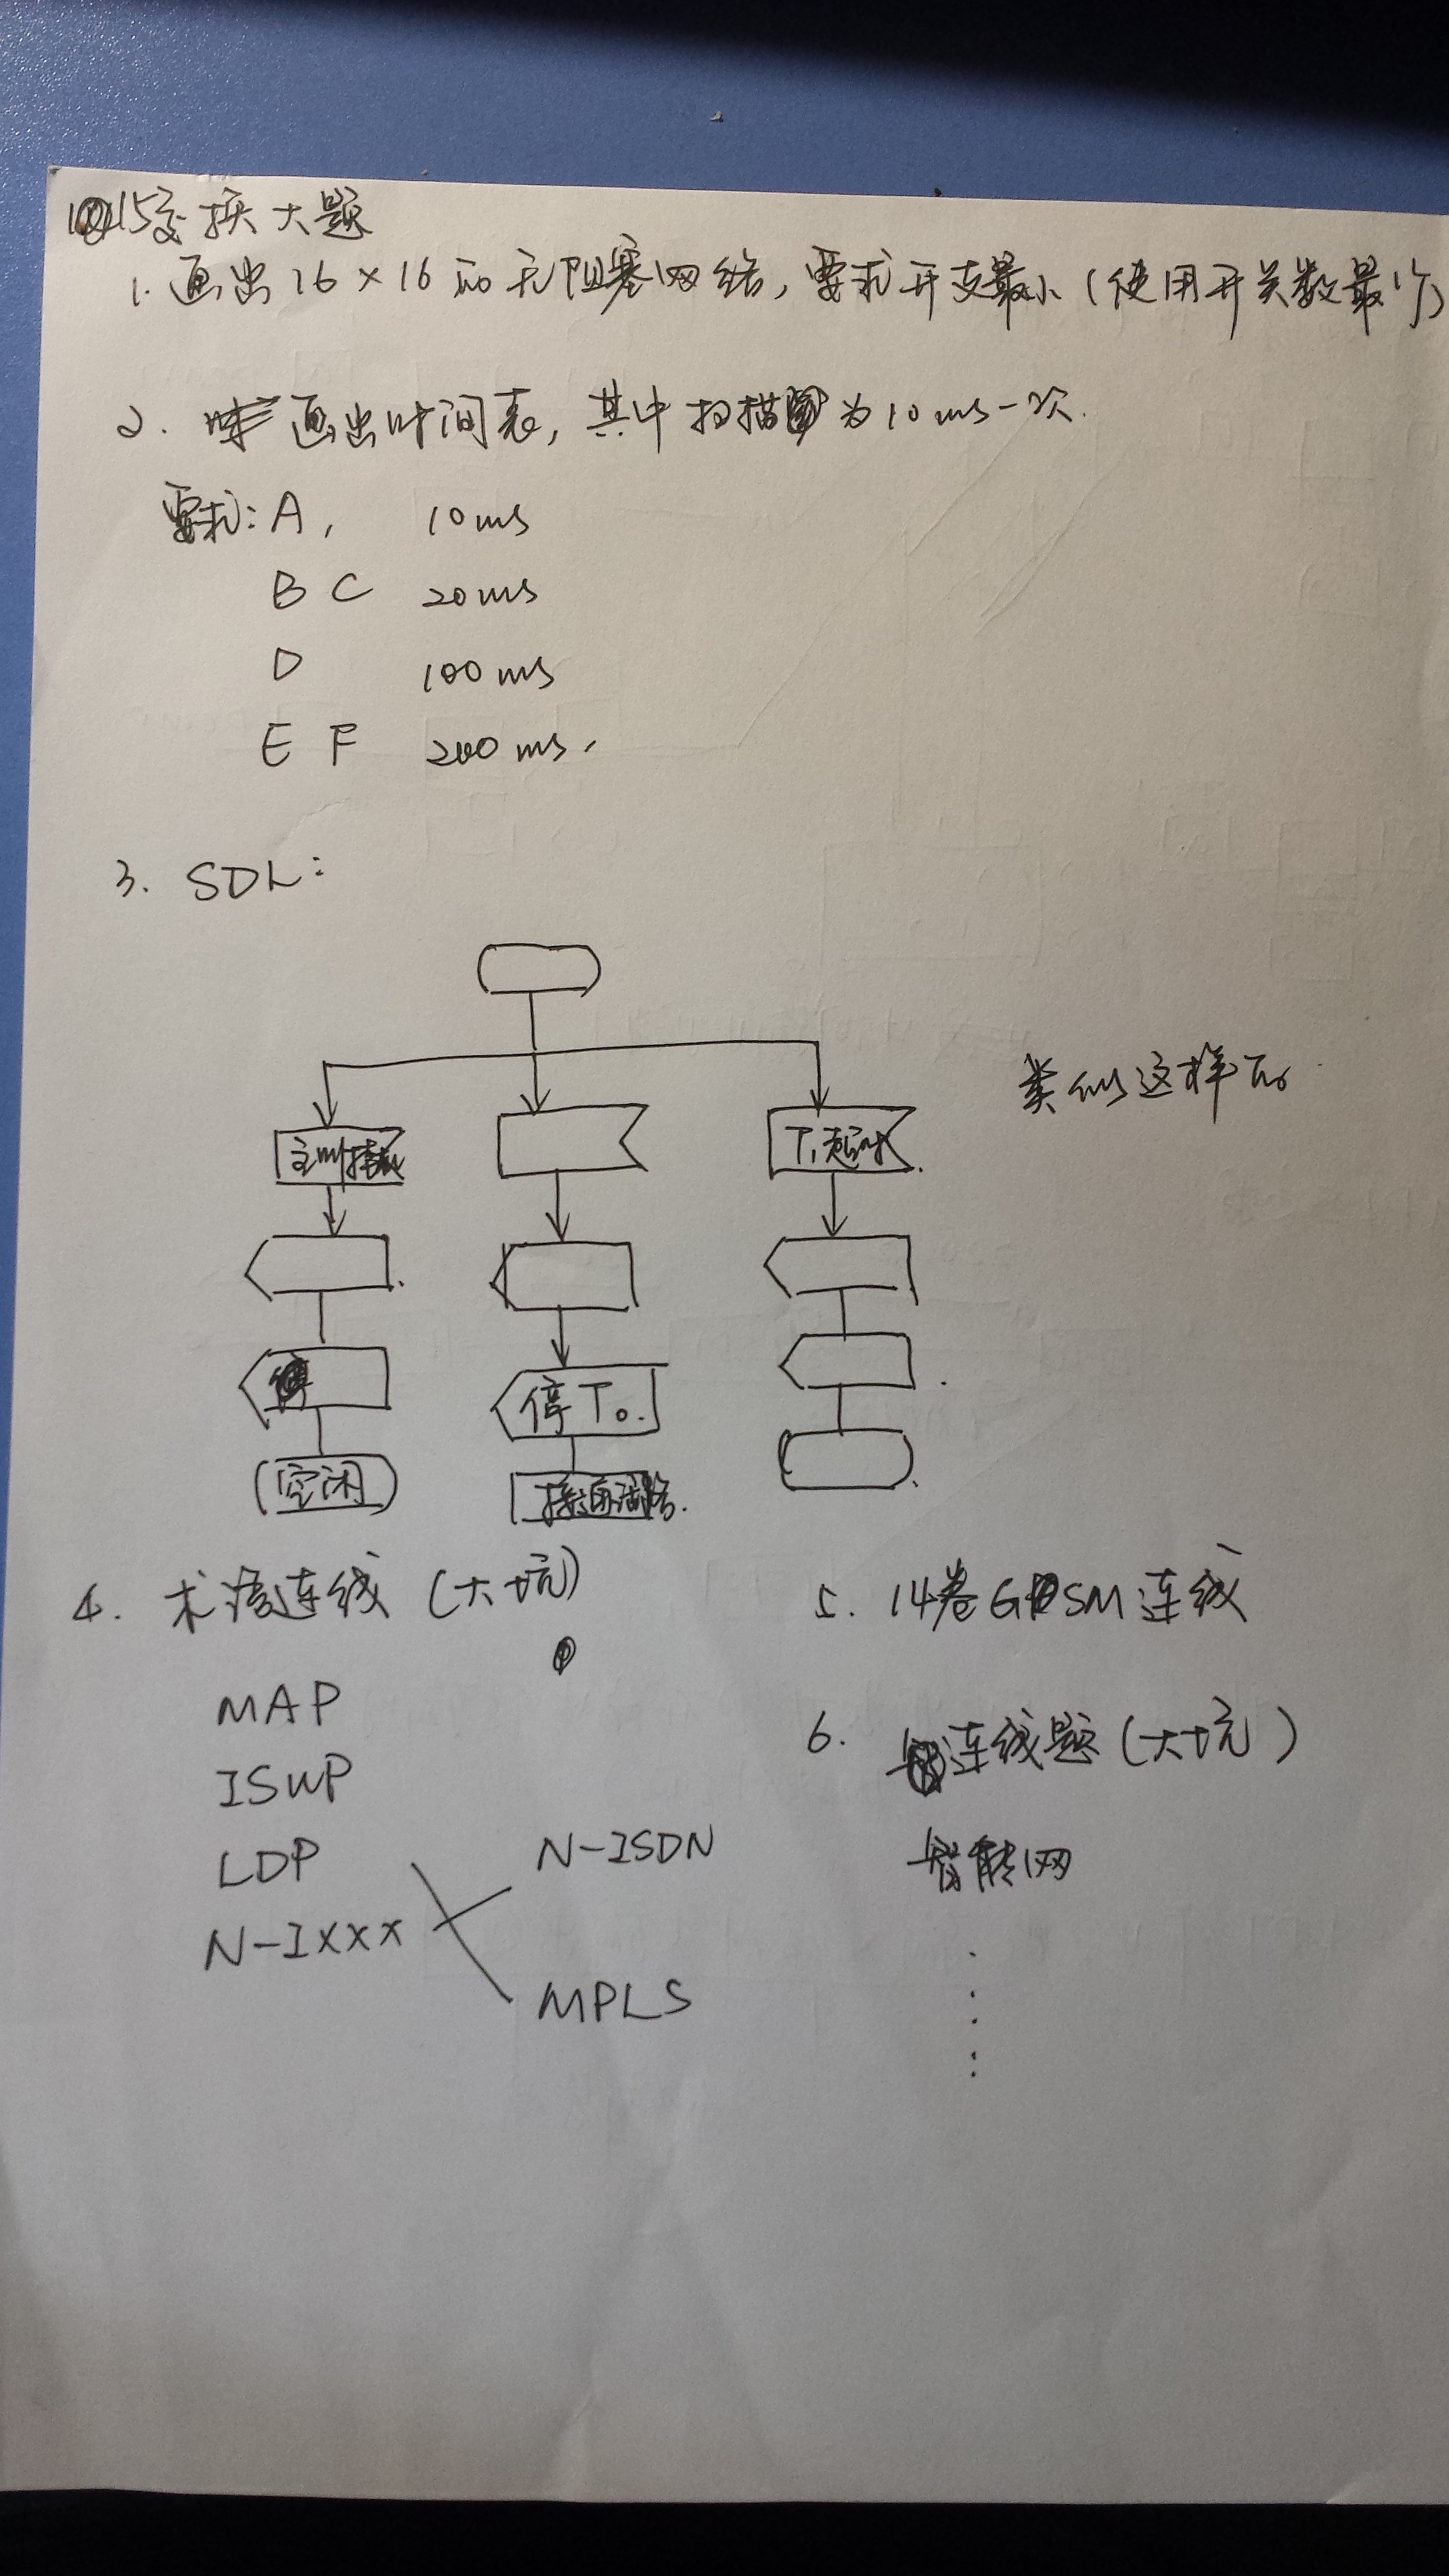 15交换大题
1. 画出16×16的无阻塞网络,要求开支最小(使用开关数最少)
2. 画出时间表,其中扫描为10ms一次.
要求: A, 10ms
B C 20ms
D 100ms
E F 200ms.
3. SDL:
类似这样的.
主叫挂机
T1超时
停T0.
空闲
接通话路.
4. 术语连线 (大坑)
MAP
ISUP
LDP
N-IXXX
N-ISDN
MPLS
5. 14卷GSM连线
6. 连线题 (大坑)
智能网